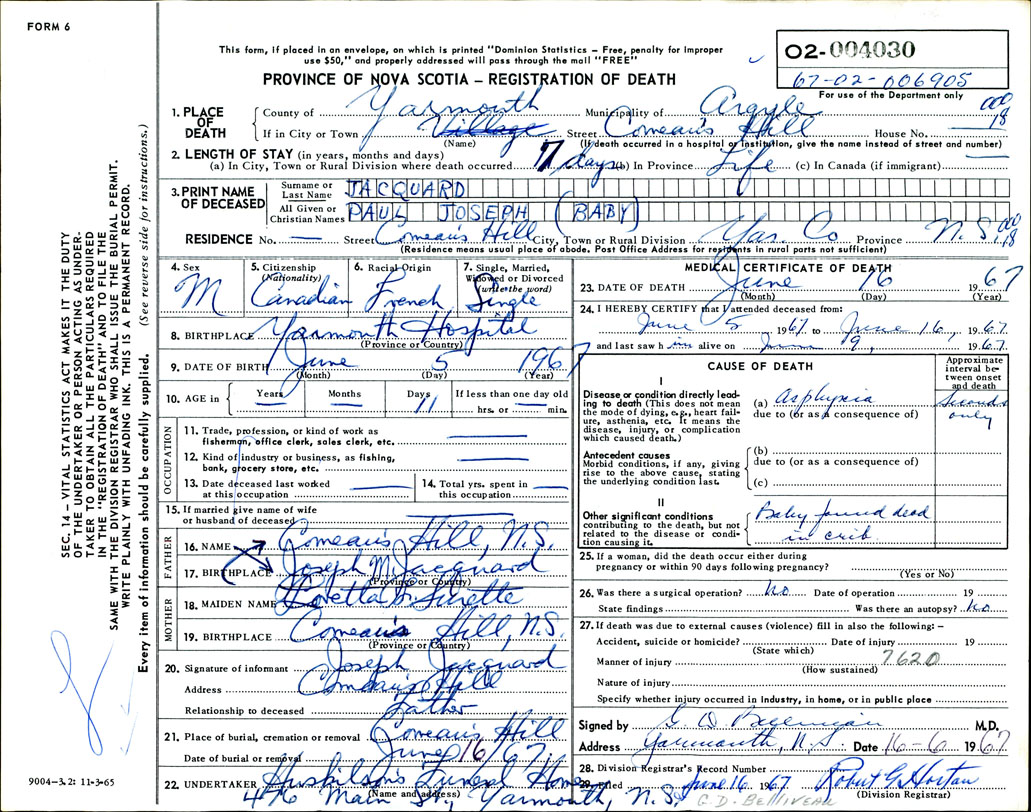 FORM 6
This form, if placed in an envelope, on which is printed "Dominion Statistics – Free, penalty for improper
use $50," and properly addressed will pass through the mail "FREE"
PROVINCE OF NOVA SCOTIA – REGISTRATION OF DEATH
02-004030
67-02-006905
For use of the Department only
1. PLACE OF DEATH
County of Yarmouth Municipality of Argyle 000 18
If in City or Town Village Street Comeau's Hill House No.
(Name) (If death occurred in a hospital or institution, give the name instead of street and number)
2. LENGTH OF STAY (in years, months and days)
(a) In City, Town or Rural Division where death occurred 7 days (b) In Province Life (c) In Canada (if immigrant)
3. PRINT NAME OF DECEASED
Surname or Last Name JACQUARD
All Given or Christian Names PAUL JOSEPH (BABY)
RESIDENCE No. — Street Comeau's Hill City, Town or Rural Division Yar. Co Province N.S. 000 18
(Residence means usual place of abode. Post Office Address for residents in rural parts not sufficient)
4. Sex M
5. Citizenship (Nationality) Canadian
6. Racial Origin French
7. Single, Married, Widowed or Divorced (write the word) Single
8. BIRTHPLACE Yarmouth Hospital
(Province or Country)
9. DATE OF BIRTH June 5 1967
(Month) (Day) (Year)
10. AGE in Years — Months — Days 11 If less than one day old
hrs. or min.
OCCUPATION
11. Trade, profession, or kind of work as
fisherman, office clerk, sales clerk, etc.
12. Kind of industry or business, as fishing,
bank, grocery store, etc.
13. Date deceased last worked
at this occupation
14. Total yrs. spent in
this occupation
15. If married give name of wife
or husband of deceased
FATHER
16. NAME Comeau's Hill, N.S.
17. BIRTHPLACE Joseph M. Jacquard
(Province or Country)
MOTHER
18. MAIDEN NAME Loretta Surette
19. BIRTHPLACE Comeau's Hill, N.S.
(Province or Country)
20. Signature of informant Joseph Jacquard
Address Comeau's Hill
Relationship to deceased Father
21. Place of burial, cremation or removal Comeau's Hill
Date of burial or removal June 16/67
22. UNDERTAKER Huskilson's Funeral Home
(Name and address)
476 Main St., Yarmouth, N.S.
MEDICAL CERTIFICATE OF DEATH
23. DATE OF DEATH June 16 1967
(Month) (Day) (Year)
24. I HEREBY CERTIFY that I attended deceased from:
June 5, 1967 to June 16, 1967
and last saw him alive on June 9, 1967.
CAUSE OF DEATH
Approximate interval between onset and death
I
Disease or condition directly leading to death (This does not mean the mode of dying, e.g., heart failure, asthenia, etc. It means the disease, injury, or complication which caused death.)
(a) Asphyxia seconds only
due to (or as a consequence of)
Antecedent causes
Morbid conditions, if any, giving rise to the above cause, stating the underlying condition last.
(b)
due to (or as a consequence of)
(c)
II
Other significant conditions
contributing to the death, but not related to the disease or condition causing it.
Baby found dead
in crib.
25. If a woman, did the death occur either during
pregnancy or within 90 days following pregnancy?
(Yes or No)
26. Was there a surgical operation? No Date of operation 19
State findings Was there an autopsy? No
27. If death was due to external causes (violence) fill in also the following: –
Accident, suicide or homicide? Date of injury 19
(State which)
Manner of injury 7620
(How sustained)
Nature of injury
Specify whether injury occurred in industry, in home, or in public place
Signed by G. D. M.D.
Address Yarmouth, N.S. Date 16-6 1967
28. Division Registrar's Record Number
29. Filed June 16 1967 Robert G. Horton
(Division Registrar)
G.D. BELLIVEAU
SEC. 14 – VITAL STATISTICS ACT MAKES IT THE DUTY
OF THE UNDERTAKER OR PERSON ACTING AS UNDER-
TAKER TO OBTAIN ALL THE PARTICULARS REQUIRED
IN THE "REGISTRATION OF DEATH" AND TO FILE THE
SAME WITH THE DIVISION REGISTRAR WHO SHALL ISSUE THE BURIAL PERMIT.
WRITE PLAINLY WITH UNFADING INK. THIS IS A PERMANENT RECORD.
Every item of information should be carefully supplied. (See reverse side for instructions.)
9004-3.2: 11-3-65